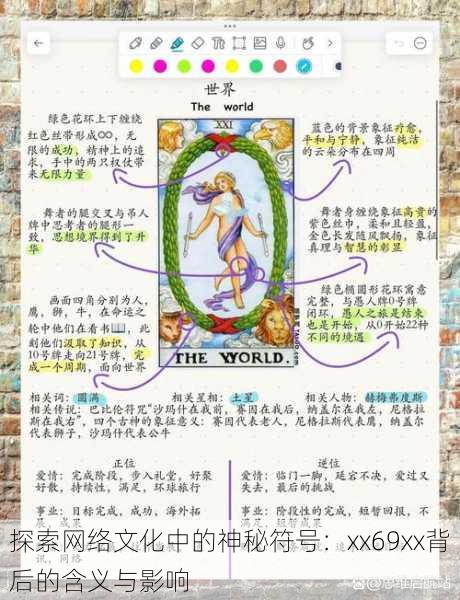 世界
The world
绿色花环上下缠绕
红色丝带形成∞，无
限的成功，精神上的追
求，手中的两只权仗带
来无限力量
蓝色的背景象征疗愈，
平和与宁静，象征纯洁
的云朵分布在四周
舞者的腿交叉与吊人
牌中思考者的腿形一
致，思想境界得到了升
华
舞者身缠绕象征高贵的
紫色丝巾，柔和且轻盈，
金色长发随风飘扬，象征
真理与智慧的彰显
画面四角分别为人，
鹰，狮，牛，在命运之
轮中他们在看书，此
刻他们汲取了知识，从
10号牌走向21号牌，完
成一个周期，面向世界
绿色椭圆形花环寓意
完整，与愚人牌0号牌
闭环，愚人之旅是结束
也是开始，从0开始22种
不同的境遇
XXI
THE WORLD.
相关词：圆满 相关星相：土星 相关人物：赫梅弗度斯
相关传说：巴比伦符咒“沙玛什在我前，赛因在我后，纳盖尔在我左，尼格拉
斯在我右”，四个古神的象征意义：赛因代表老人，尼格拉斯代表鹰，纳盖尔
代表狮子，沙玛什代表公牛
正位
爱情：完成阶段，步入礼堂，好聚
好散，持续性，满足，环球旅行
事业：目标完成，成功，海外拓
展，成果
逆位
爱情：临门一脚，延宕不决，爱过又
失去，最后的挑战
事业：阶段性的完成，短暂回报，不
探索网络文化中的神秘符号：xx69xx背
后的含义与影响